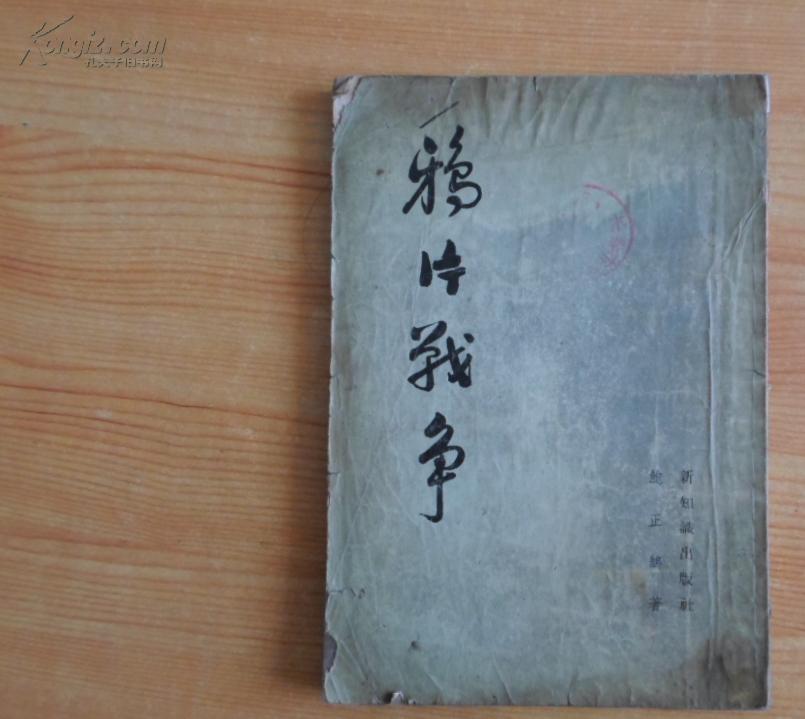 Kongfz.com
孔夫子旧书网
鴉片戰争
新知識出版社
鮑正鵠著